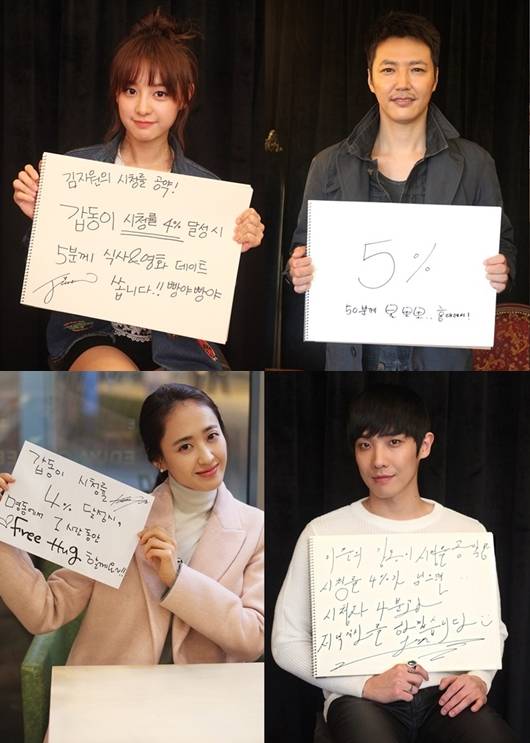 김지원의 시청률 공약!
갑동이 시청률 4% 달성시
5분께 식사&영화 데이트
쏩니다!! 빵야빵야
5%
50분께
갑동이 시청률
4% 달성시,
명동에서
1시간동안
Free Hug
할게요!!!
이준의 갑동이 시청률 공약
시청률 4%가 넘으면..
시청자 4분과
저녁식사를 하겠습니다